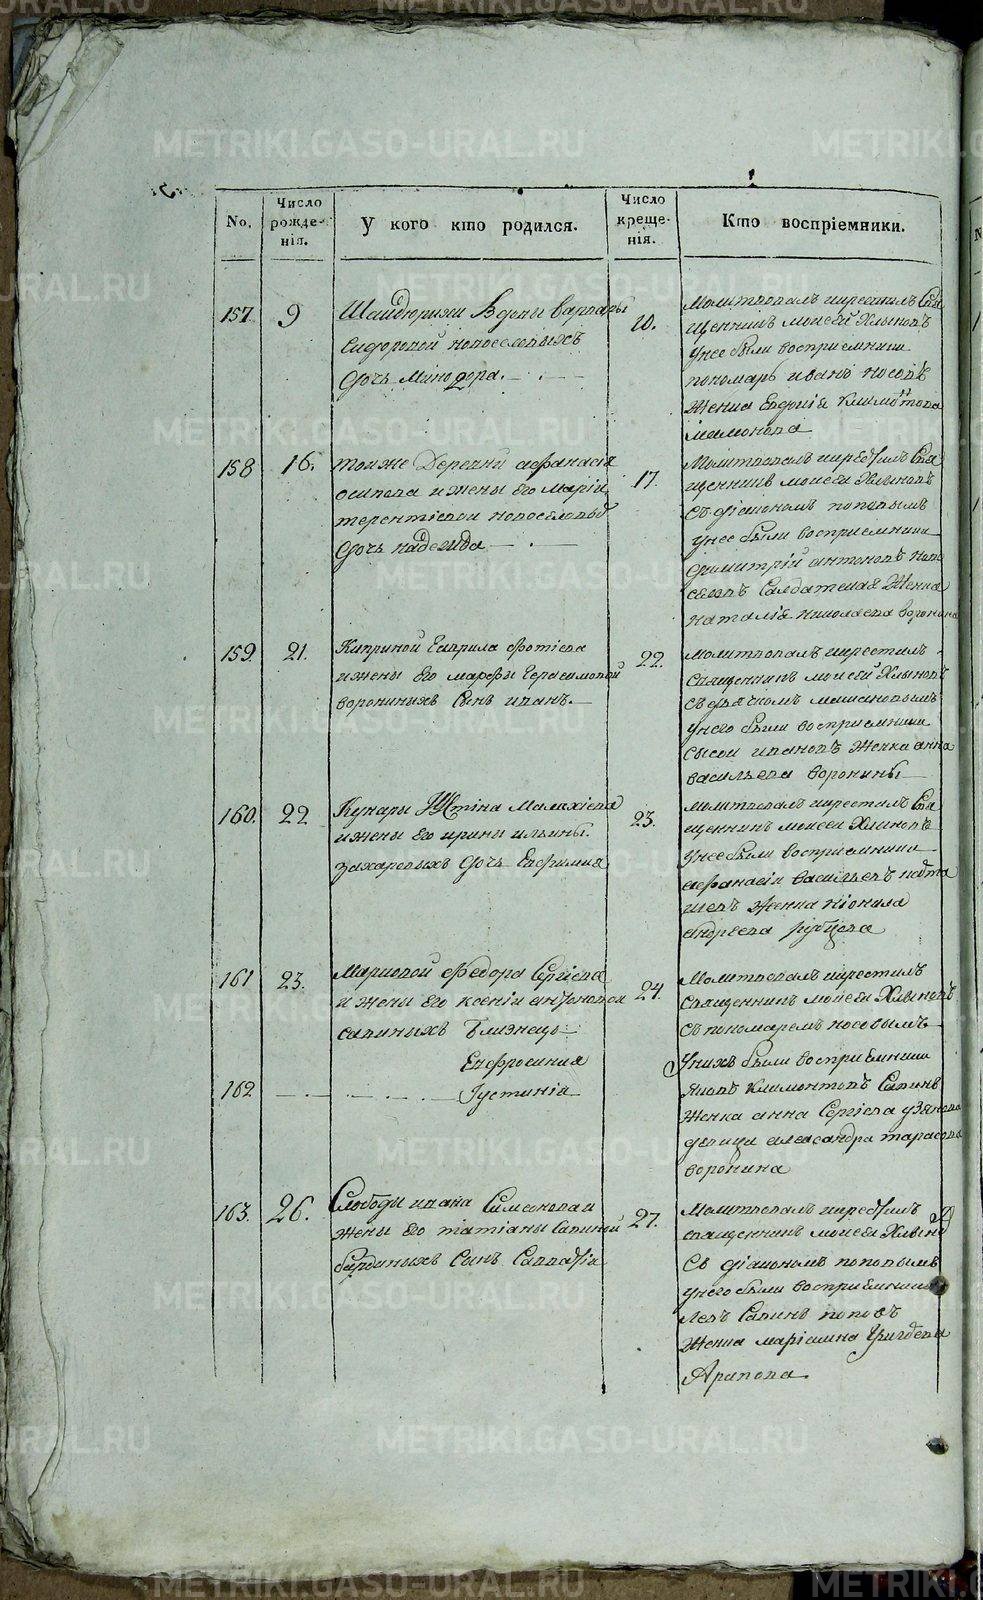 No.
Число рожде-нія.
У кого кто родился.
Число креще-нія.
Кто воспріемники.
157
9
Шайдюрихи Вдовы варвары
Сидоровой новоселовыхъ
Дочь Минодора.
10.
Молитвовалъ икрестилъ Свя
щенникъ моисей Хлыновъ
унее были восприемники
пономарь иванъ носовъ
Женка Евдокія Климонтова
мамонова
158
16.
тояже Деревни афанасія
осипова ижены Его Маріи
терентіевой новоселовыхъ
Дочь надежда
17.
Молитвовалъ икрестилъ Свя
щенникъ моисей Хлыновъ
съ діакономъ поповымъ
унее были восприемники
димитрій антоновъ ново
селовъ Салдатская Женка
наталія николаева воронина
159.
21.
Киприной Гаврила фотіева
ижены Его марфы Герасимовой
ворониныхъ Сынъ иванъ.
22.
молитвовалъ икрестилъ
Священникъ моисей Хлыновъ
съ дьячкомъ
унего были восприемники
сысой ивановъ Женка анна
васильева воронины
160.
22
Кунары Устіна Малахіева
ижены Его ирины ильины.
захаровыхъ Дочь Евфимия
23.
молитвовалъ икрестилъ Свя
щенникъ моисей Хлыновъ
унее были восприемники
афанасій васильевъ
Женка
андреева рубцова
161
23.
Мариовой Федора Сергіева
и жены Его ксеніи антоновой
савиныхъ Близнецы
Евфросиния
24.
Молитвовалъ икрестилъ
Священникъ моисей Хлыновъ
съ пономаремъ носовымъ
Унихъ были восприемники
Яковъ Климонтовъ Савинъ
Женка анна Сергіева узянова
девица александра тарасова
воронина
162
Іустинія
163.
26.
Слободы ивана Симанова и
жены Его татіаны Савиной
Сынъ Савватій
27.
Молитвовалъ икрестилъ
священникъ моисей Хлыновъ
Съ діакономъ поповымъ
унего были восприемники
Левъ Савинъ поповъ
Женка маріамна Григорьева
Арапова.
METRIKI.GASO-URAL.RU